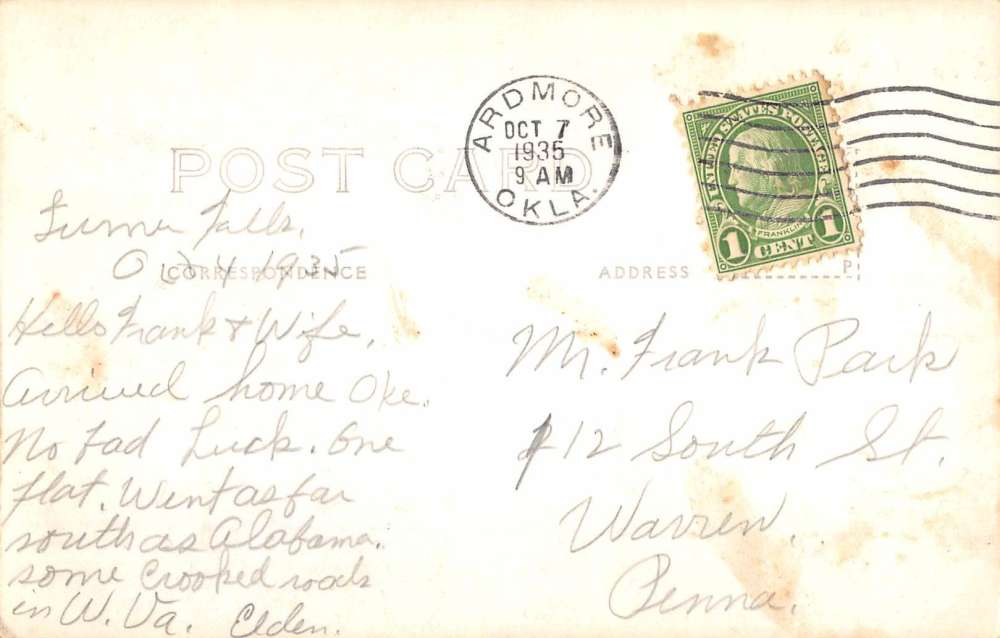 POST CARD
ARDMORE
OCT 7
1935
9 AM
OKLA.
UNITED STATES POSTAGE
FRANKLIN
1 CENT 1
Turner Falls,
Oct 4 1935
CORRESPONDENCE
ADDRESS
P
Hello Frank & Wife,
Arrived home Oke.
No bad Luck. One
flat. Went as far
south as Alabama.
some crooked roads
in W. Va. Elden.
Mr. Frank Park
112 South St.
Warren,
Penna.